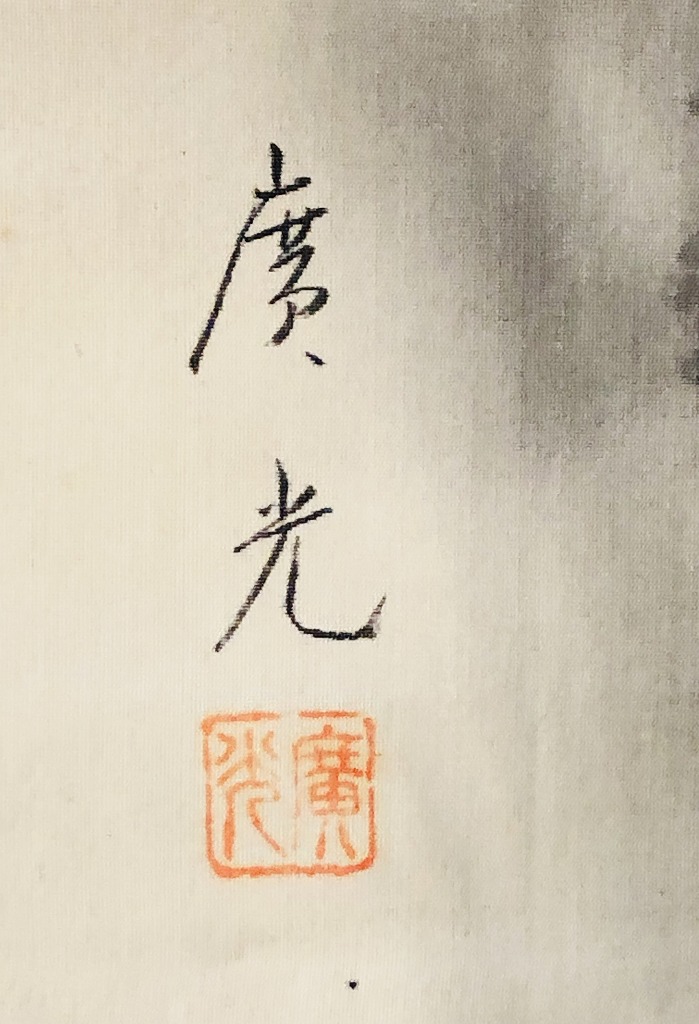 廣光
廣光